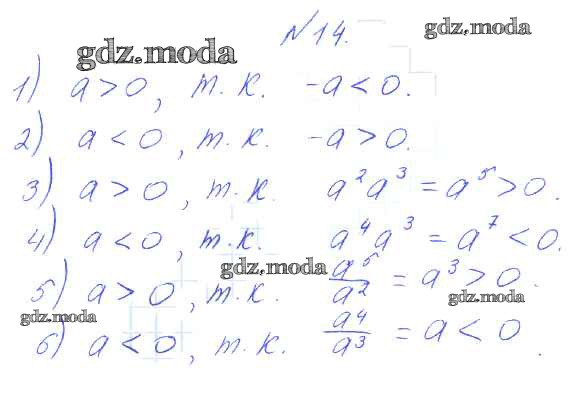 №14.
gdz.moda
gdz.moda
1) a > 0, т.к. -a < 0.
2) a < 0, т.к. -a > 0.
3) a > 0, т.к. a²a³ = a⁵ > 0.
4) a < 0, т.к. a⁴a³ = a⁷ < 0.
gdz.moda
5) a > 0, т.к. a⁵/a² = a³ > 0.
gdz.moda
gdz.moda
6) a < 0, т.к. a⁴/a³ = a < 0.